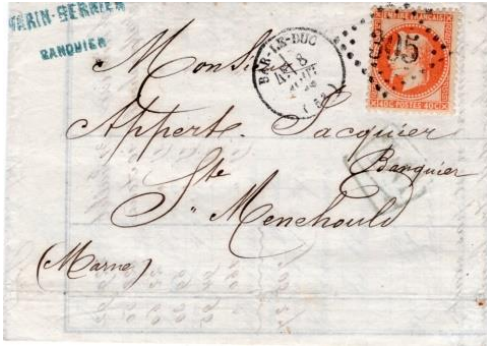 MARIN-BERNIER
BANQUIER
BAR-LE-DUC
8
AOUT
(54)
EMPIRE FRANÇAIS
395
40C POSTES 40C
Monsieur
Apperte. Jacquier
Banquier
Ste Menehould
(Marne)